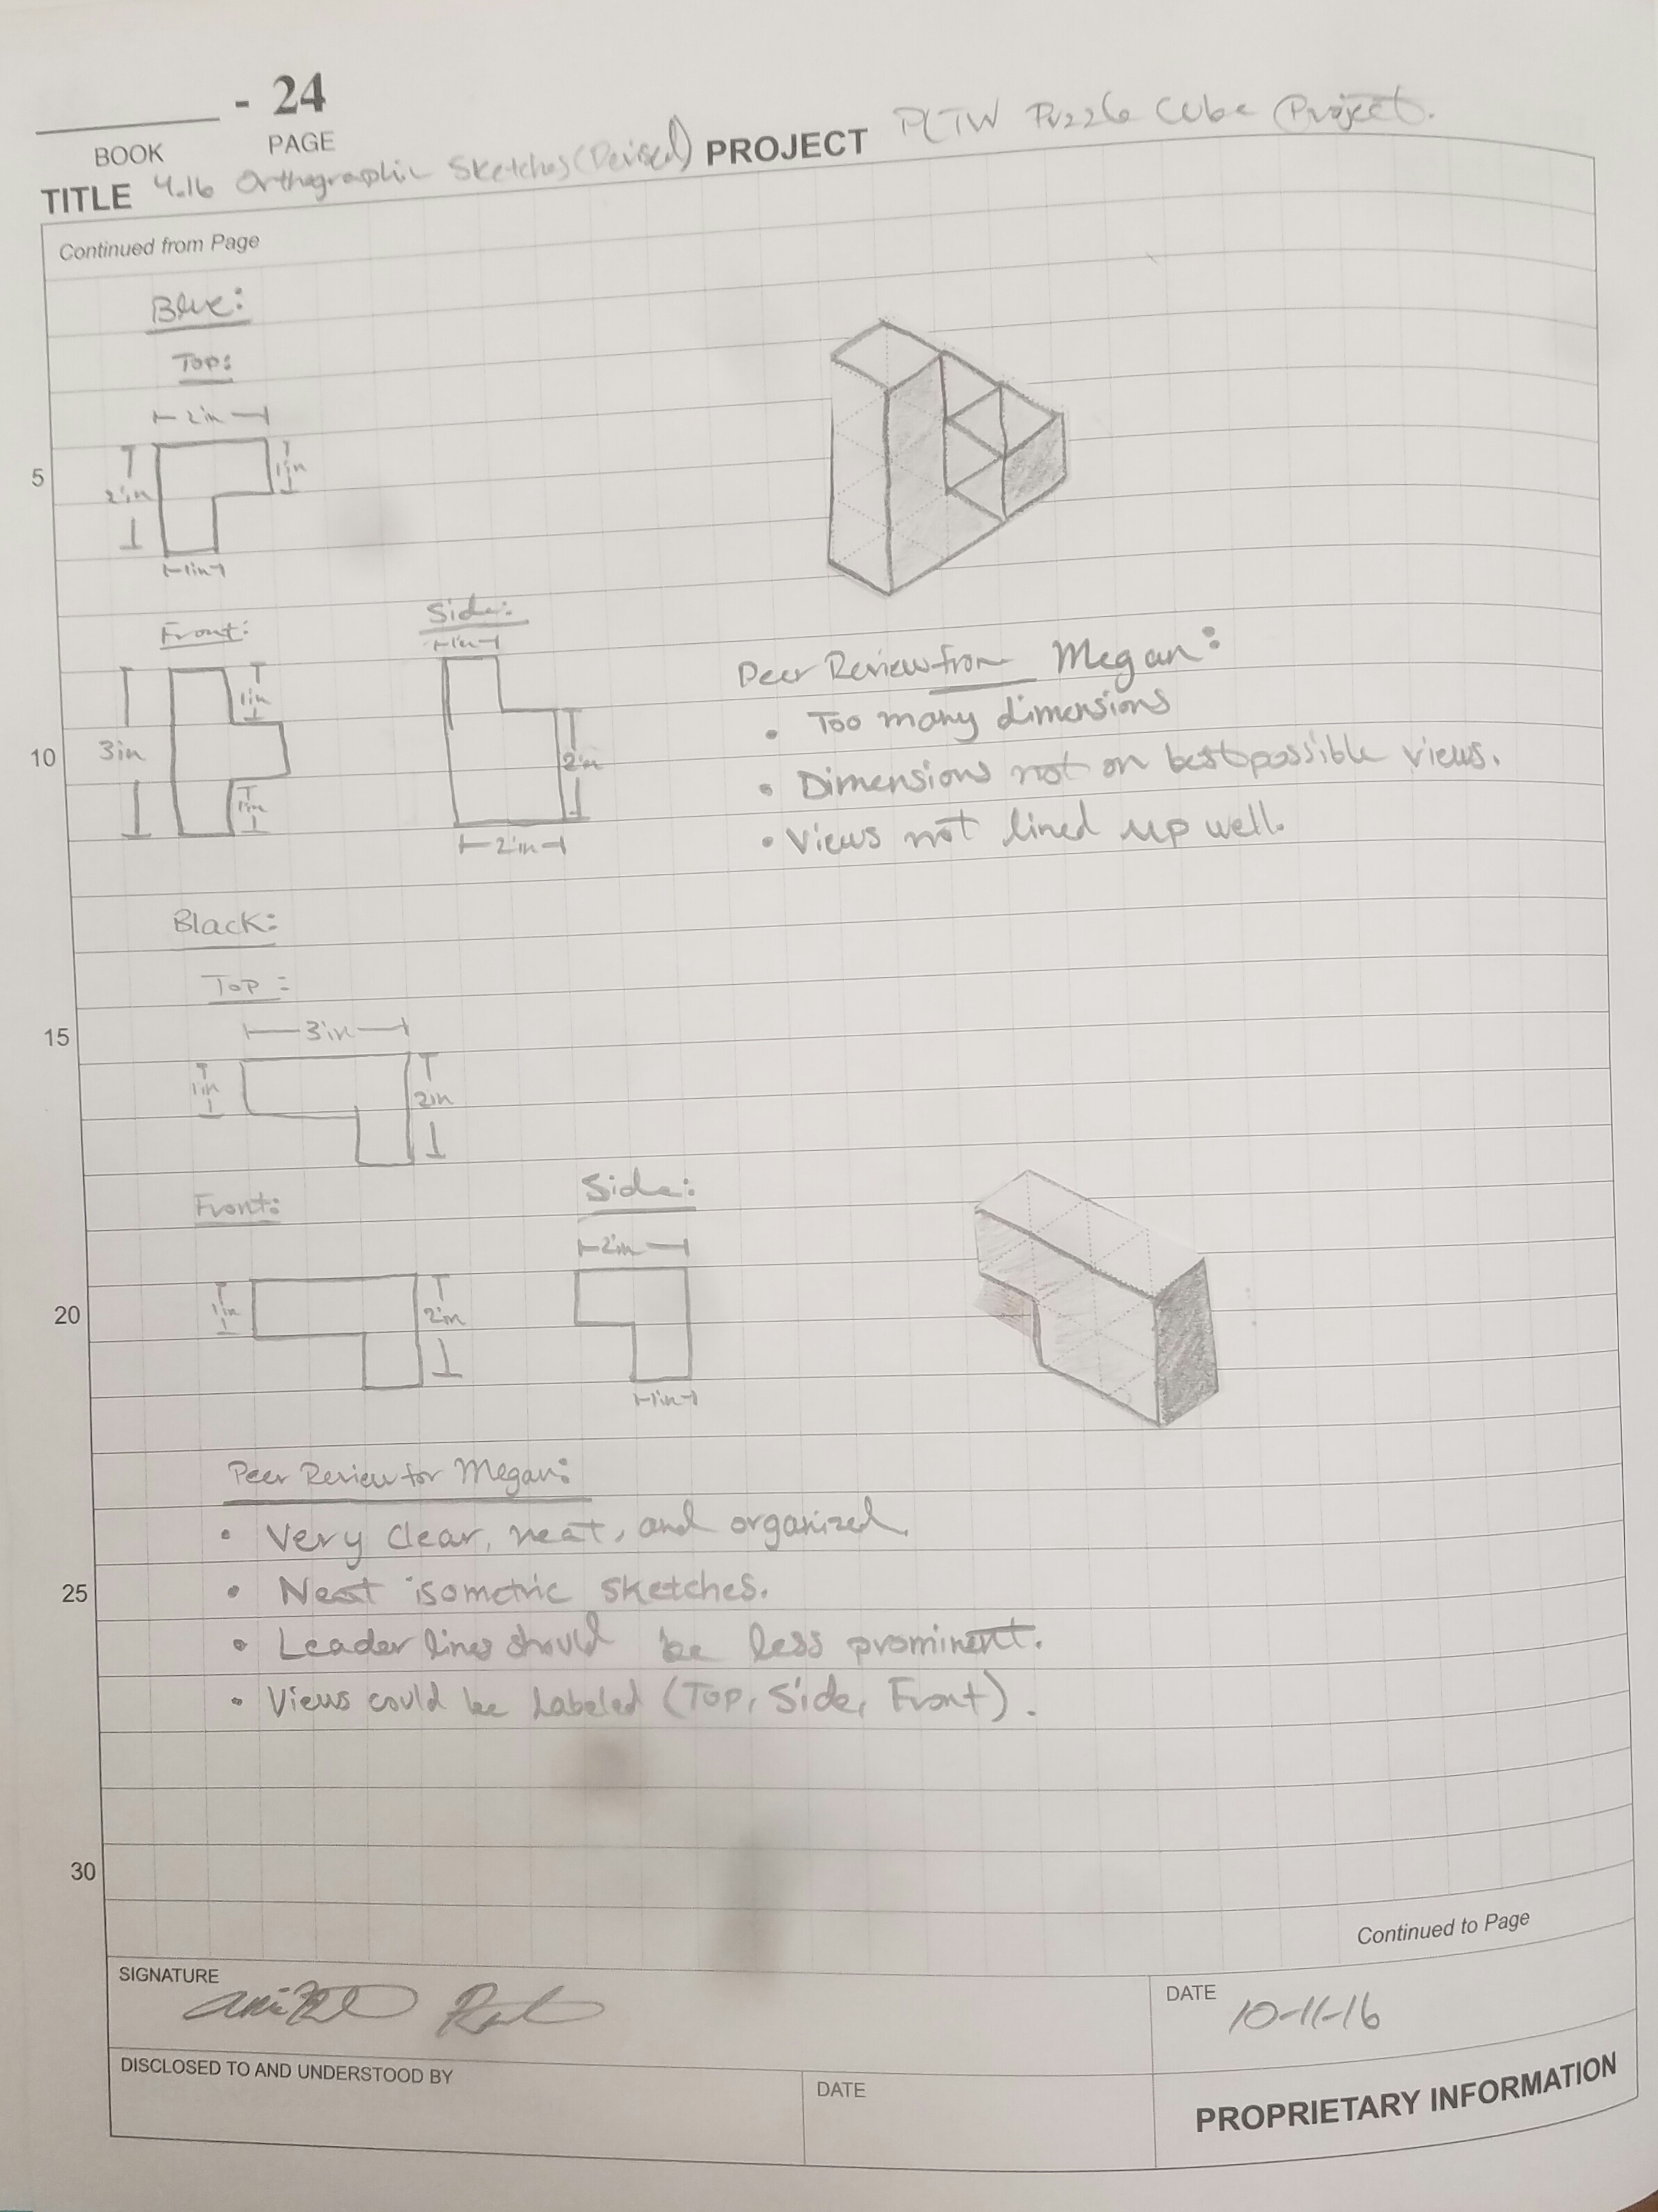 - 24
BOOK PAGE
PROJECT PLTW Puzzle Cube Project.
TITLE 4.1b Orthographic Sketches (Revised)
Continued from Page
Blue:
Top:
2in
5
2in
1in
1in
Front:
Side:
1in
1in
10
3in
1in
2in
2in
Peer Review from Megan:
• Too many dimensions
• Dimensions not on best possible views.
• Views not lined up well.
Black:
Top:
15
3in
1in
2in
Front:
Side:
2in
20
1in
2in
1in
Peer Review for Megan:
• Very clear, neat, and organized.
25
• Neat isometric sketches.
• Leader lines should be less prominent.
• Views could be labeled (Top, Side, Front).
30
Continued to Page
SIGNATURE
DATE 10-11-16
DISCLOSED TO AND UNDERSTOOD BY
DATE
PROPRIETARY INFORMATION